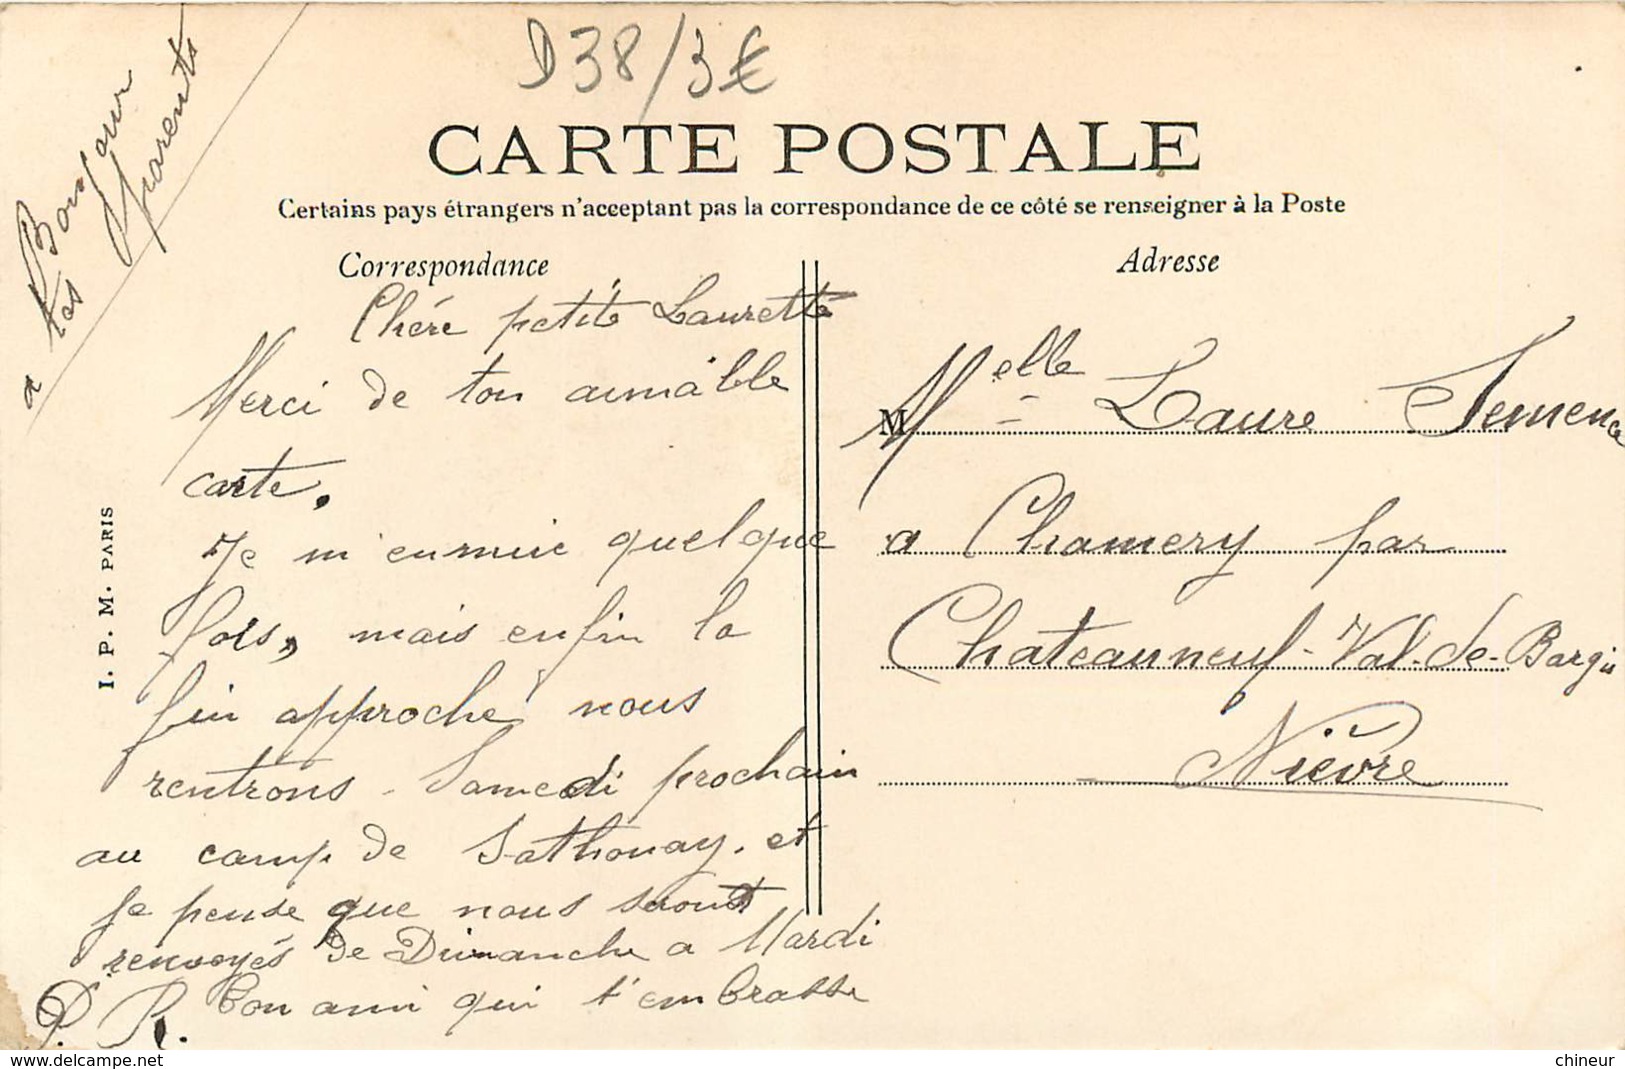 D38/3€
a Bonjour
tes parents
CARTE POSTALE
Certains pays étrangers n'acceptant pas la correspondance de ce côté se renseigner à la Poste
Correspondance
Chére petite Laurette
Merci de ton aimable
carte.
Je m'ennuie quelque
fois, mais enfin la
fin approche, nous
rentrons Samedi prochain
au camp de Sathonay. et
je pense que nous seront
renvoyés de Dimanche a Mardi
Ton ami qui t'embrasse
P. R.
I. P. M. PARIS
Adresse
Melle Laure Semence
a Chamery par
Chateauneuf-Val-de-Bargis
Nièvre
www.delcampe.net
chineur